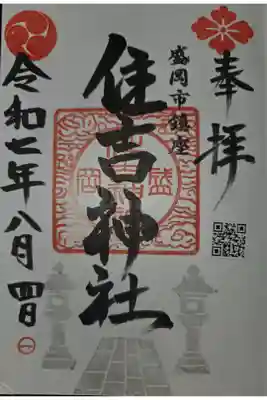 奉拝
盛岡市鎮座
住吉神社
令和七年八月四日